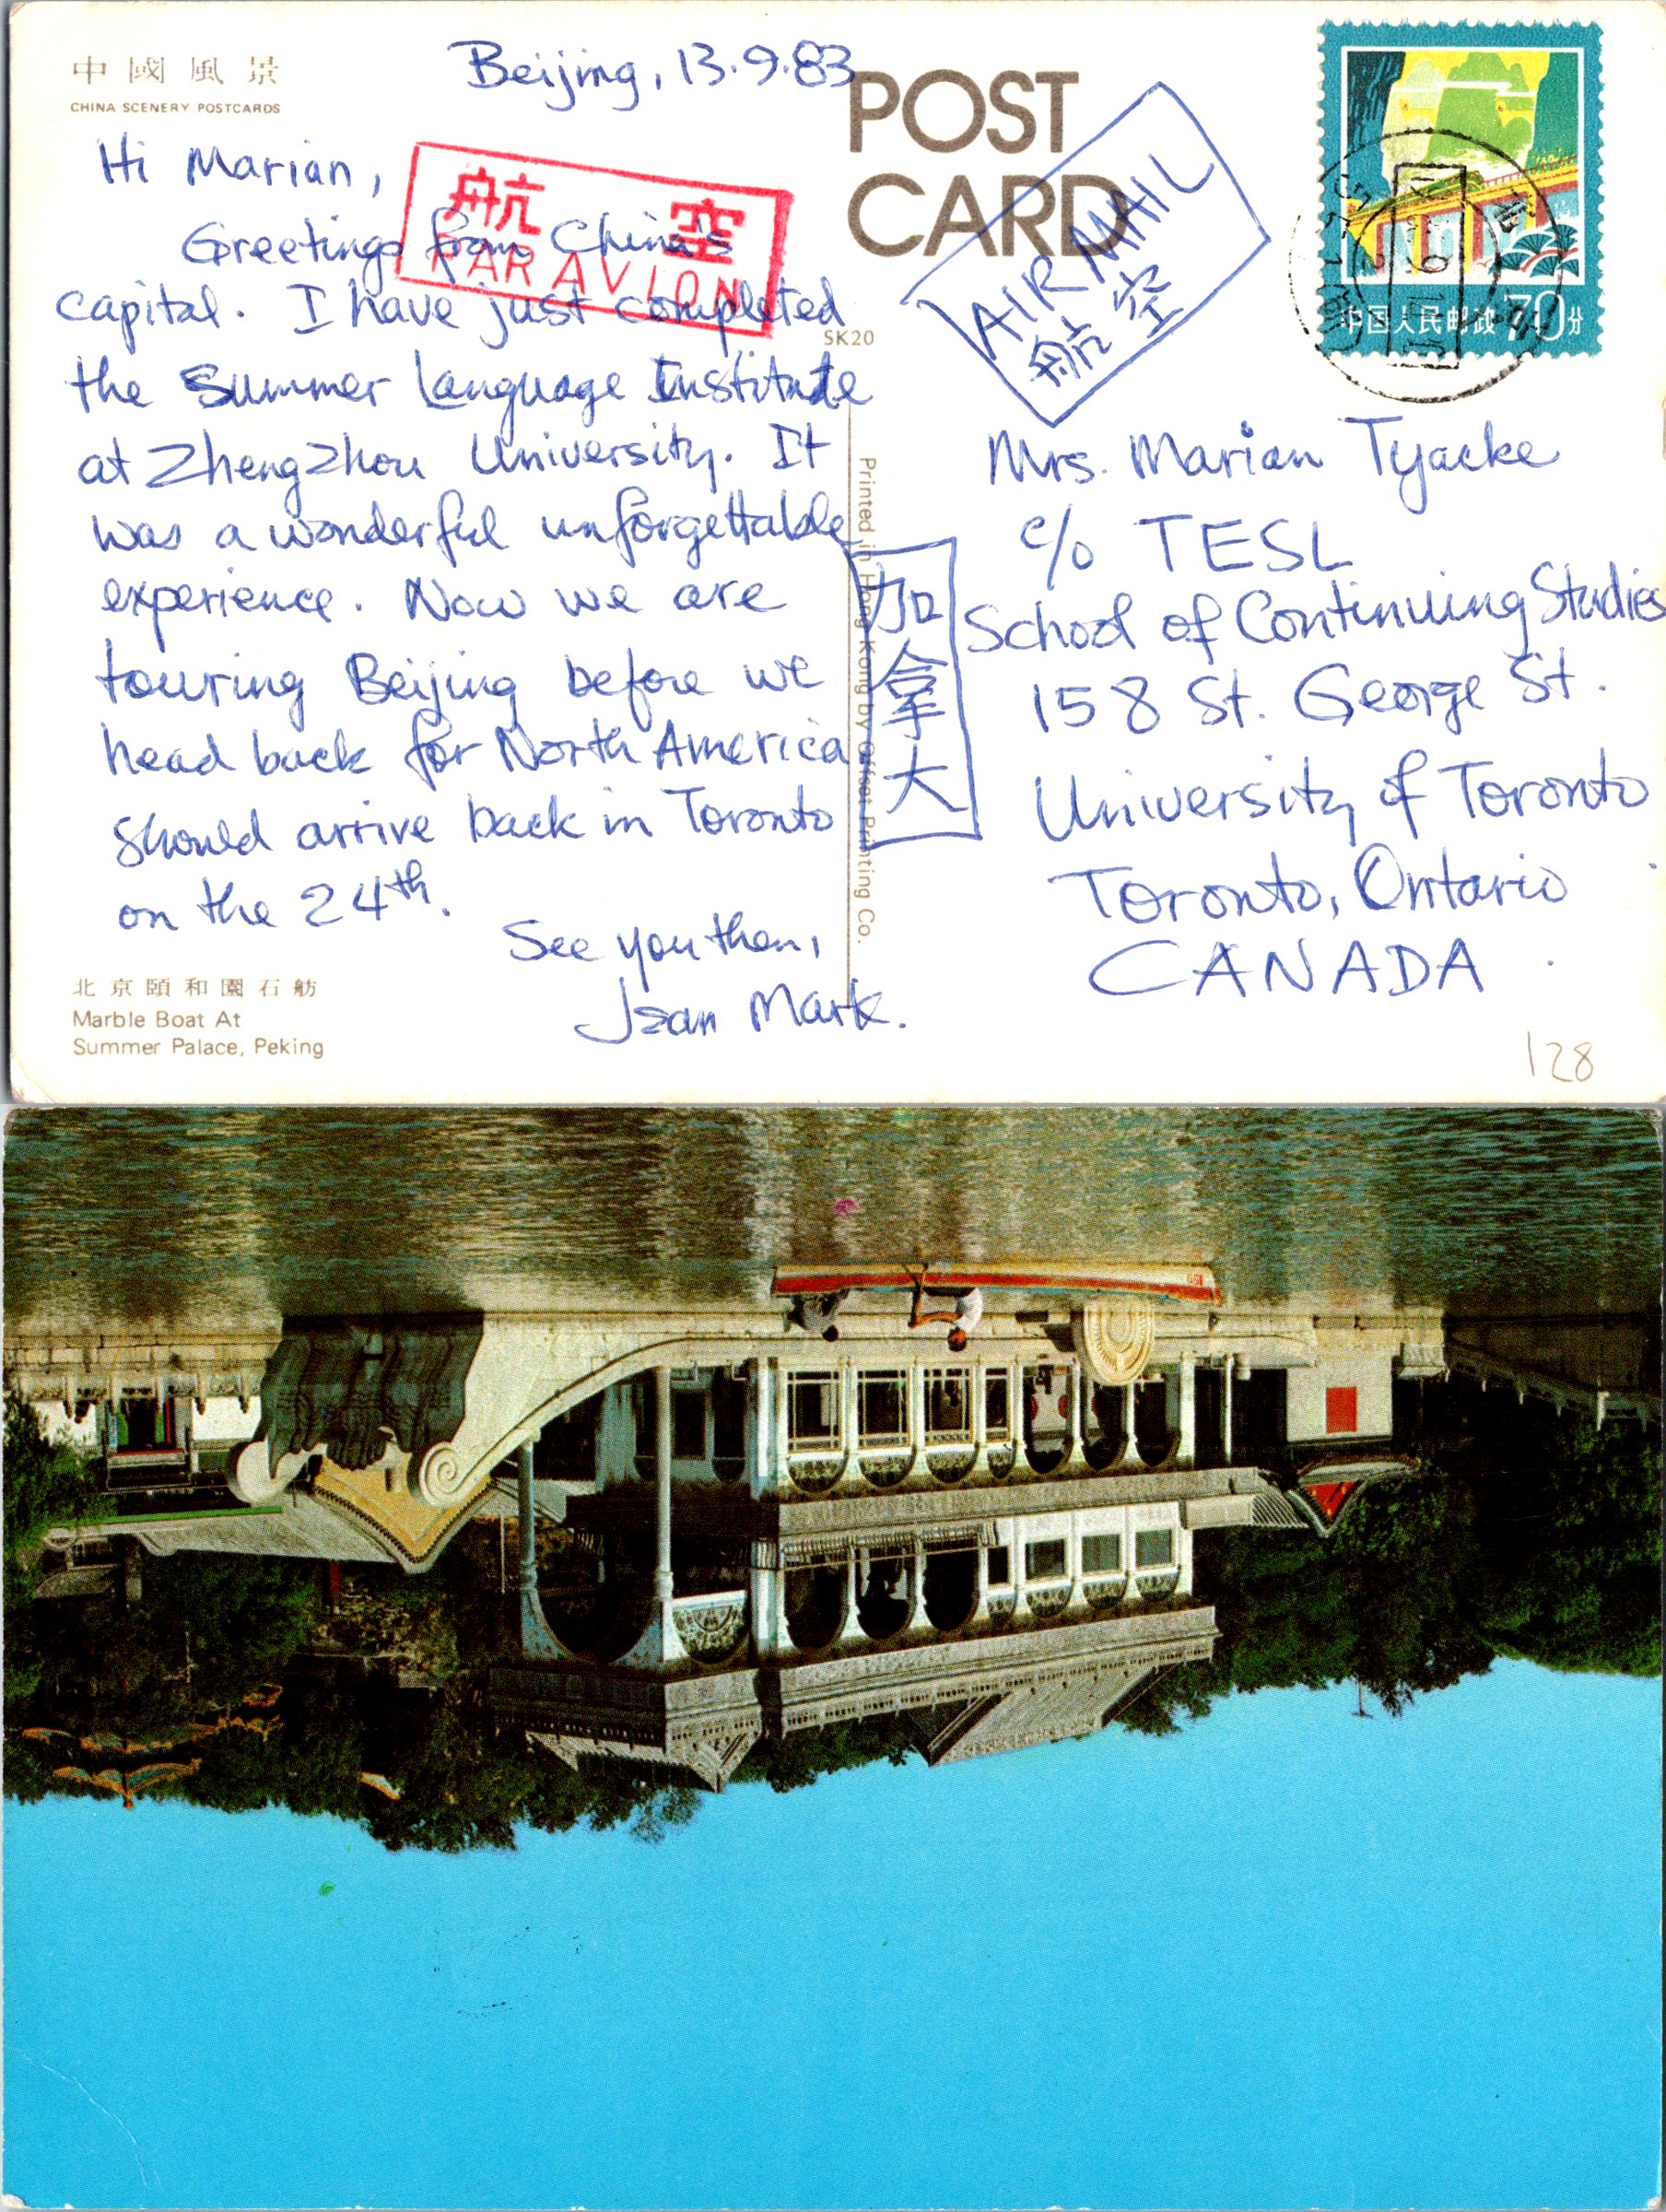 中國風景
CHINA SCENERY POSTCARDS
Beijing, 13.9.83
Hi Marian,
Greetings from China's
capital. I have just completed
the Summer Language Institute
at Zhengzhou University. It
was a wonderful unforgettable
experience. Now we are
touring Beijing before we
head back for North America
should arrive back in Toronto
on the 24th.
See you then,
Jean Mark.
北京頤和園石舫
Marble Boat At
Summer Palace, Peking
航空
PAR AVION
POST
CARD
SK20
Printed in Hong Kong by Offset Printing Co.
AIR MAIL
航空
中国人民邮政 70分
加拿大
Mrs. Marian Tyacke
c/o TESL
School of Continuing Studies
158 St. George St.
University of Toronto
Toronto, Ontario
CANADA
128